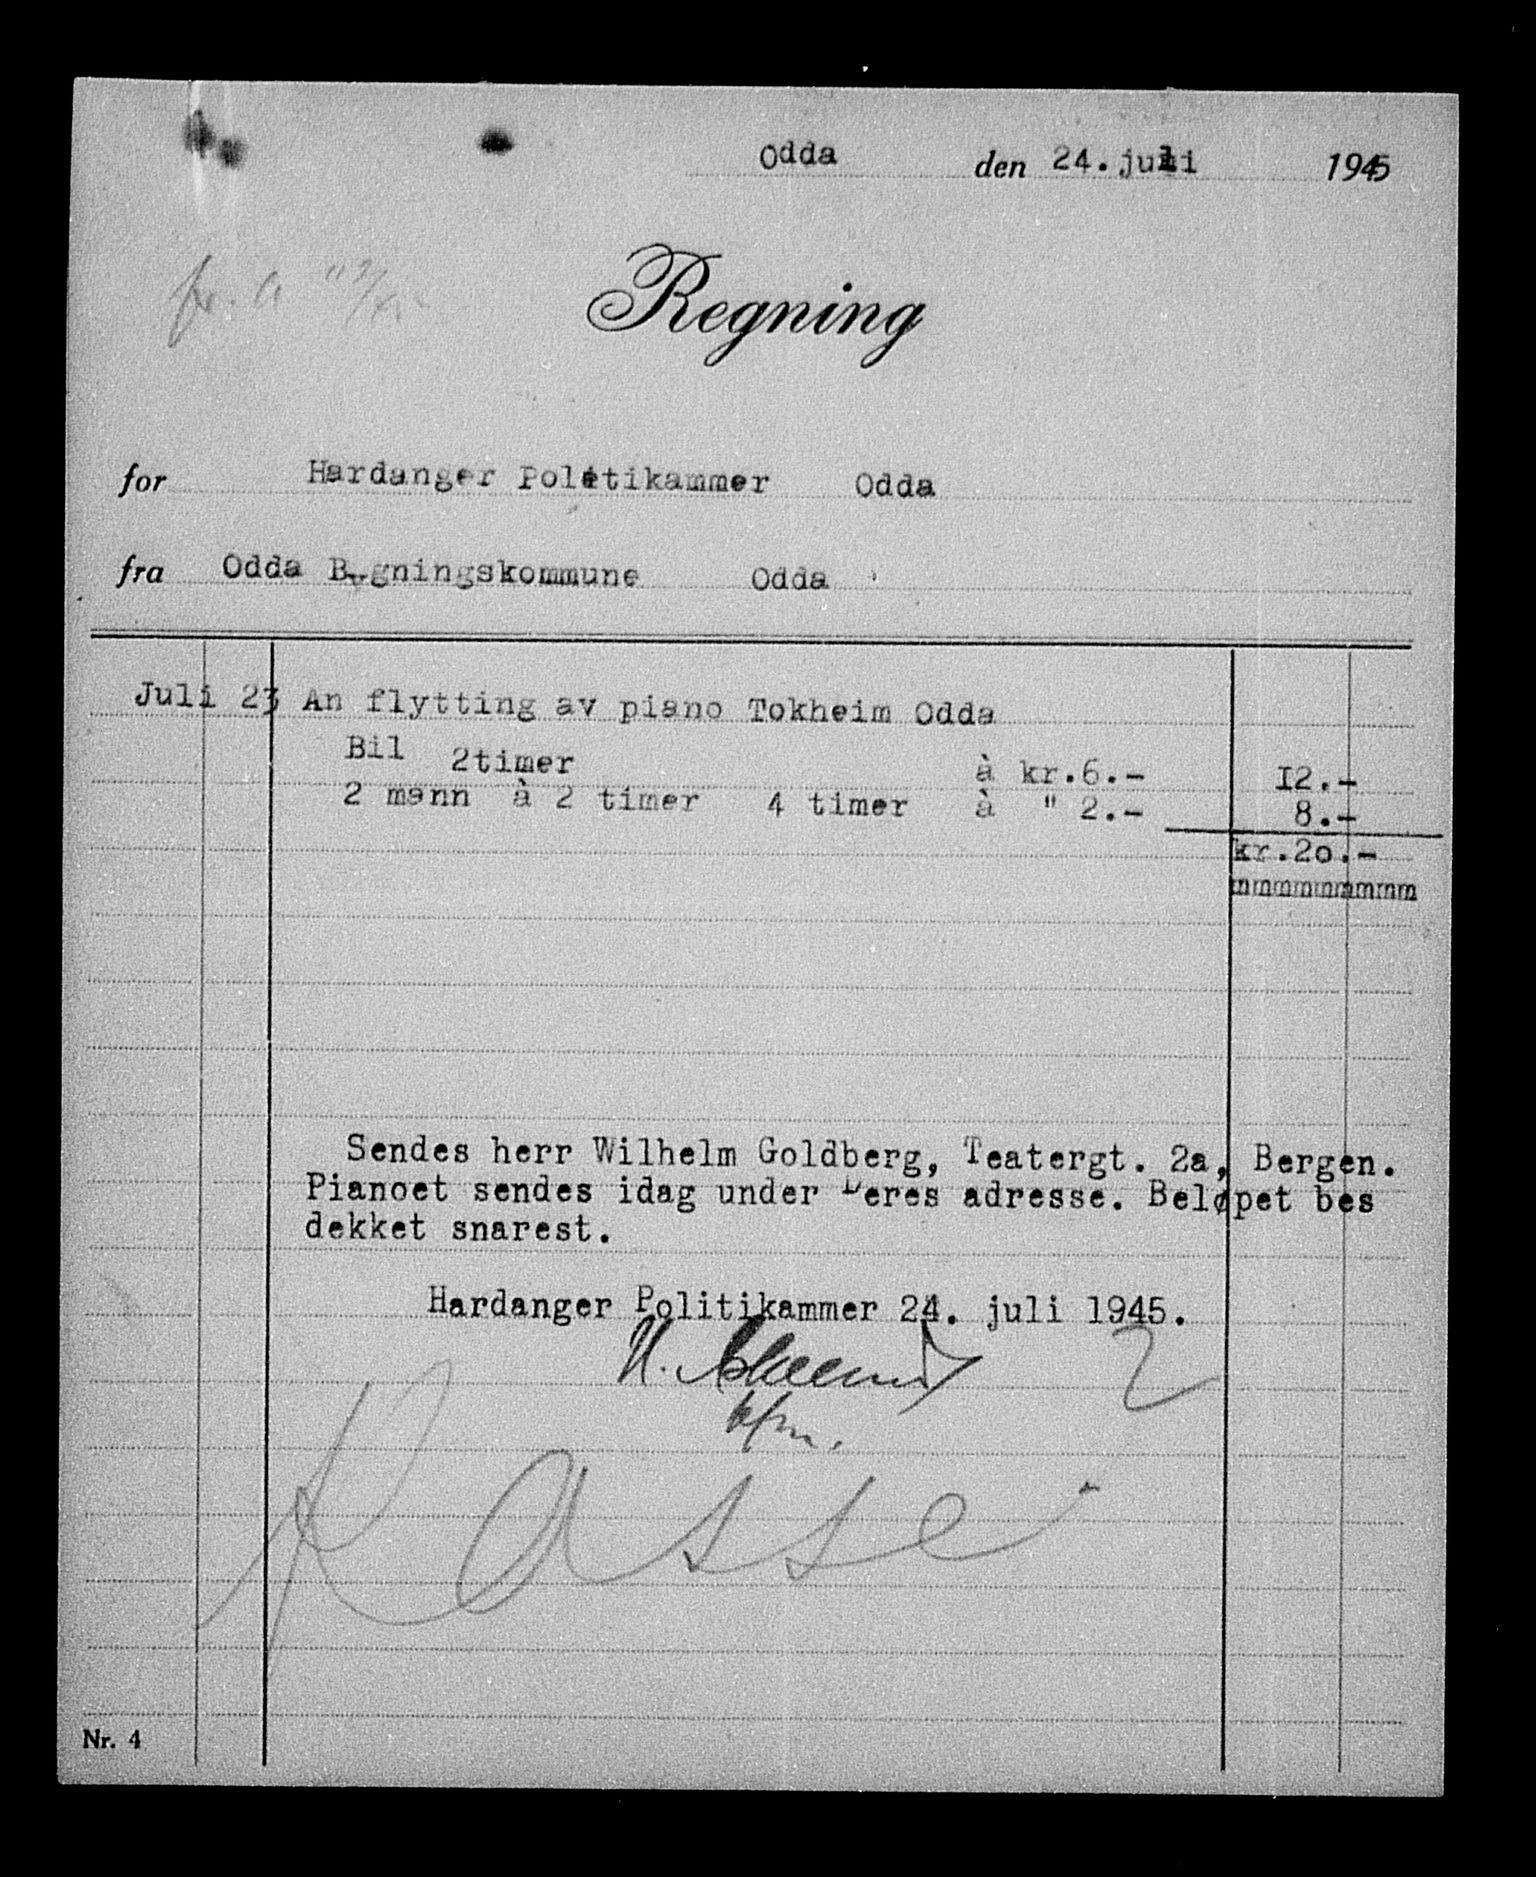 Odda den 24.juli 1945
Regning
for Hardanger Politikammer Odda
fra Odda Bygningskommune Odda
Juli 23 An flytting av piano Tokheim Odda
Bil 2timer à kr.6.- I2.-
2 mann à 2 timer 4 timer à " 2.- 8.-
kr.2o.-
mmmmmmmmm
Sendes herr Wilhelm Goldberg, Teatergt. 2a, Bergen.
Pianoet sendes idag under Deres adresse. Beløpet bes
dekket snarest.
Hardanger Politikammer 24. juli 1945.
2
Kasse
Nr. 4